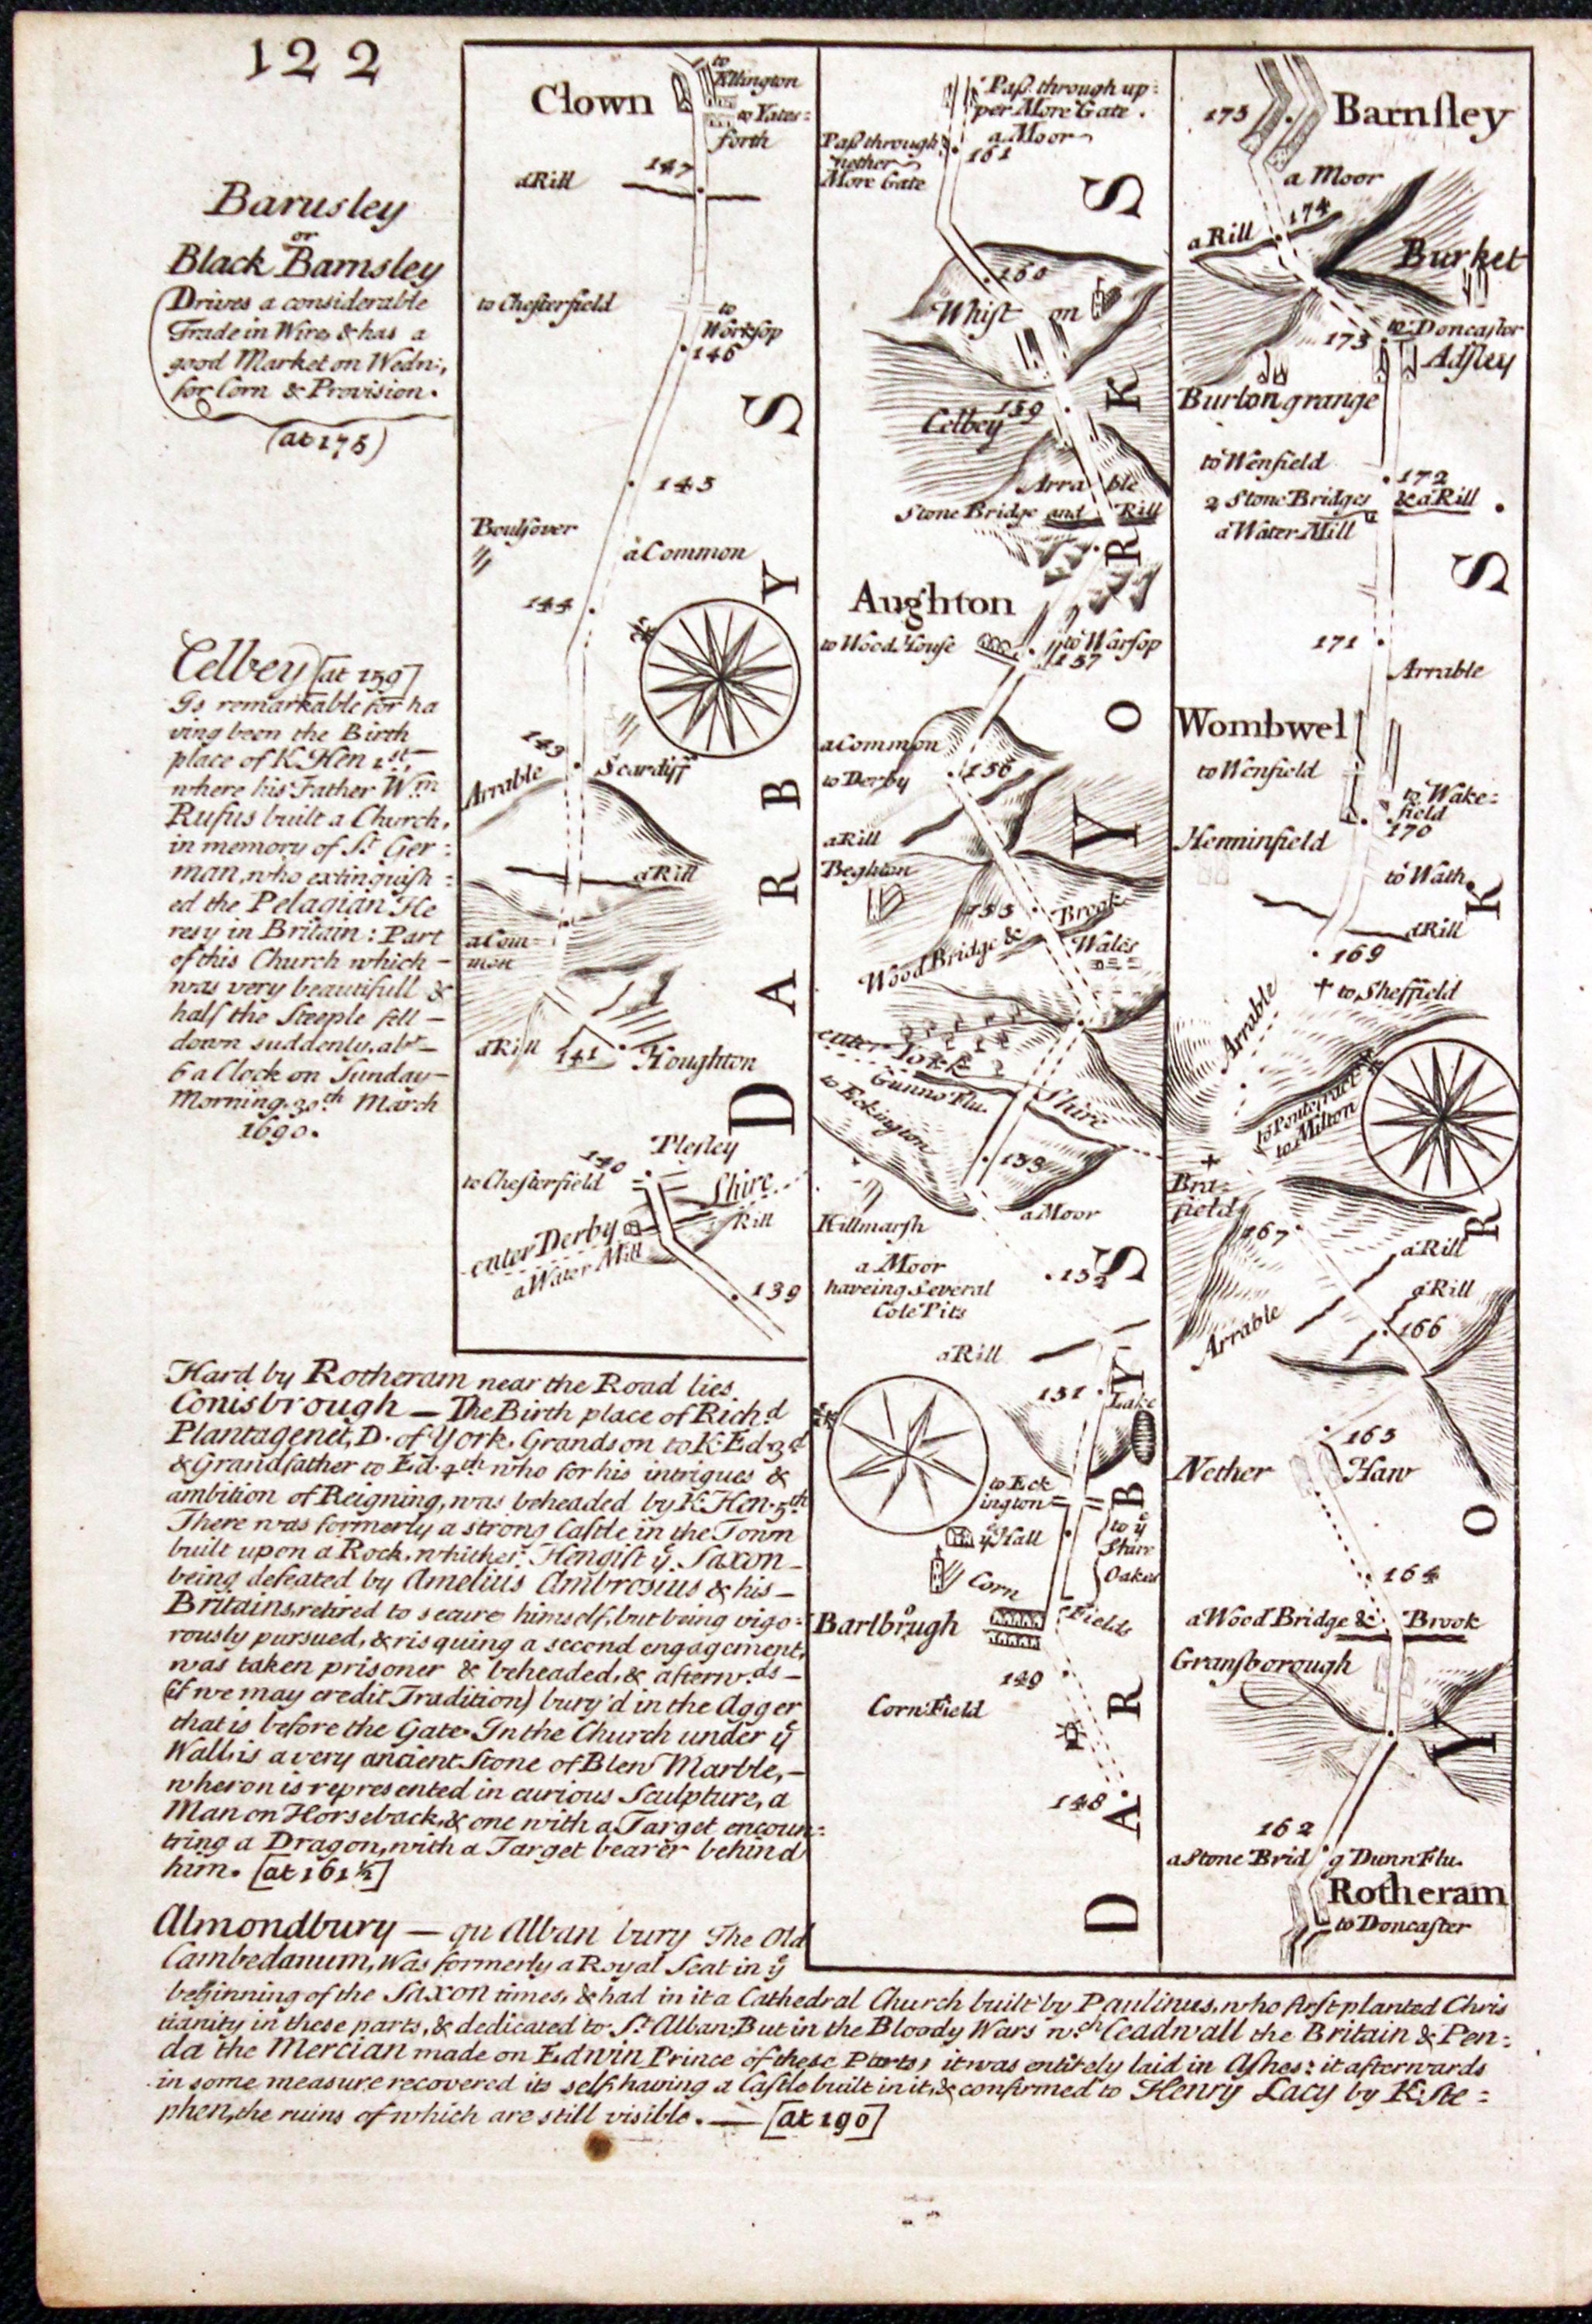 122
Barnsley
or
Black Barnsley
Drives a considerable
Trade in Wire, & has a
good Market on Wedn:,
for Corn & Provision.
(at 175)
Celbey [at 159]
Is remarkable for ha
ving been the Birth
place of K. Hen 1st,
where his Father Wm
Rufus built a Church,
in memory of St. Ger:
man, who extinguish:
ed the Pelagian He
resy in Britain: Part
of this Church which —
was very beautifull &
half the Steeple fell —
down suddenly, abt —
6 a Clock on Sunday
Morning 30th March
1690.
Hard by Rotheram near the Road lies
Conisbrough — The Birth place of Richd
Plantagenet, D. of York. Grandson to K. Ed. 3d
& Grandfather to Ed. 4th who for his intrigues &
ambition of Reigning, was beheaded by K. Hen. 5th
There was formerly a strong Castle in the Town
built upon a Rock, whither Hengist ye Saxon —
being defeated by Amelius Ambrosius & his —
Britains, retired to secure himself, but being vigo:
rously pursued, & risquing a second engagement,
was taken prisoner & beheaded, & afterw.ds —
(if we may credit Tradition) bury'd in the Agger
that is before the Gate. In the Church under ye
Wall is a very ancient Stone of Blew Marble, —
wheron is represented in curious Sculpture, a
Man on Horseback, & one with a Target encoun:
tring a Dragon, with a Target bearer behind
him. [at 161½]
Almondbury — qu Alban bury The Old
Cambedanum, Was formerly a Royal Seat in ye
beginning of the Saxon times, & had in it a Cathedral Church built by Paulinus, who first planted Chris
tianity in these parts, & dedicated to St. Alban; But in the Bloody Wars wch Ceadwall the Britain & Pen:
da the Mercian made on Edwin Prince of these Parts, it was entirely laid in Ashes: it afterwards
in some measure recovered its self, having a Castle built in it, & confirmed to Henry Lacy by K. Ste:
phen, the ruins of which are still visible. — [at 190]
Clown
to
Ellington
to Yates:
forth
147
a Rill
to Chesterfield
to
Worksop
146
145
Boulsover
a Common
144
143
Scardiff
Arrable
a Rill
a Com:
mon
a Rill
141
Houghton
Plesley
140
to Chesterfield
Shire
enter Derby
Rill
a Water Mill
139
DARBYS
Pass through up:
per More Gate.
Pass through
nether
More Gate
a Moor
161
160
Whist on
159
Celbey
Arra ble
Stone Bridge and Rill
Aughton
to Wood House
to Warsop
157
a Common
to Derby
156
a Rill
Beghton
155
Brook
Wood Bridge &
Wales
enter York
Shire
Gunno Flu.
to Eckington
153
Killmarsh
a Moor
a Moor
haveing Several
Cole Pits
152
a Rill
151
Lake
to Eck
ington
ye Hall
to ye
Shire
Oakes
Corn
Barlbrugh
Fields
149
Corn Field
148
DARBYS
YORKS
Barnsley
175
a Moor
174
a Rill
Burket
to Doncaster
173
Adsley
Burton grange
to Wenfield
172
2 Stone Bridges & a Rill
a Water Mill
171
Arrable
Wombwel
to Wenfield
to Wake:
field
170
Henninfield
to Wath
a Rill
169
to Sheffield
Arrable
to Pontefract
to Milton
Bra:
field
167
a Rill
a Rill
166
Arrable
165
Nether Haw
164
a Wood Bridge & Brook
Gransborough
162
a Stone Bridg Dunn Flu.
Rotheram
to Doncaster
YORKS